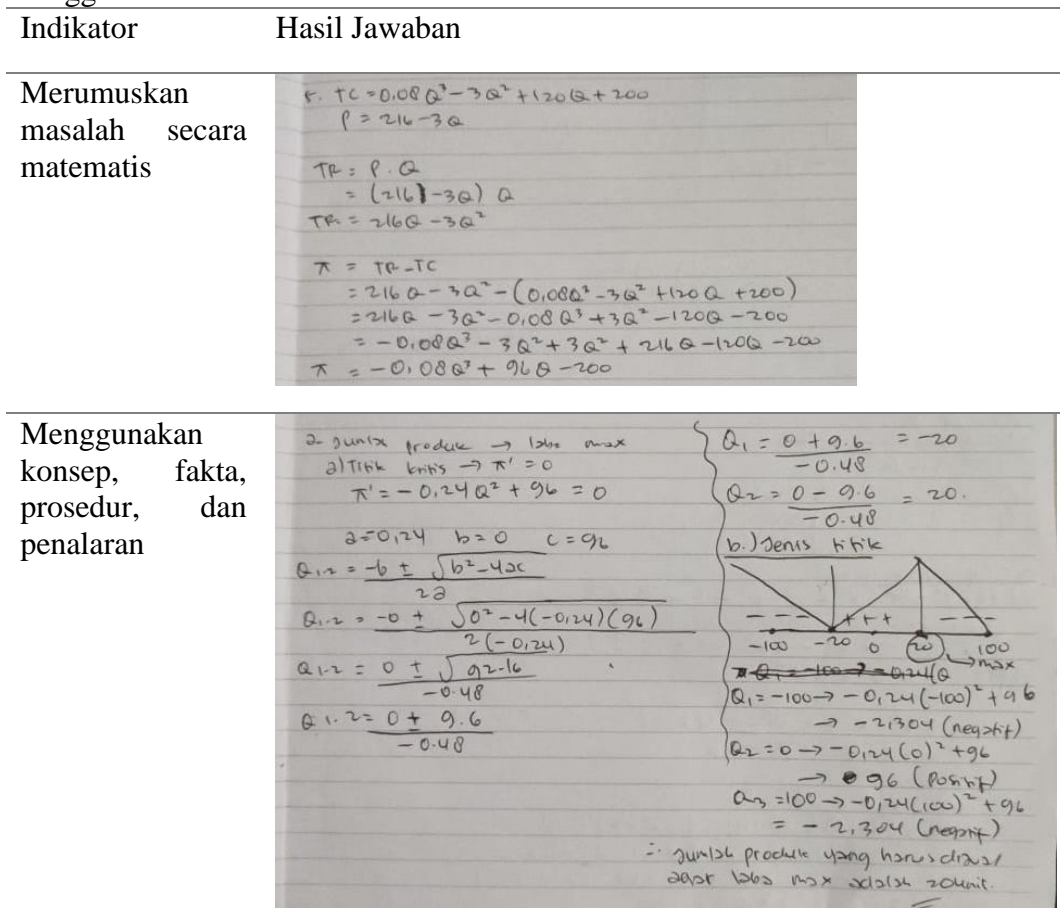 Indikator Hasil Jawaban
Merumuskan
masalah secara
matematis
TC = 0,08 Q³ - 3Q² + 120Q + 200
P = 216 - 3Q
TR = P . Q
= (216 - 3Q) Q
TR = 216Q - 3Q²
π = TR - TC
= 216Q - 3Q² - (0,08Q³ - 3Q² + 120Q + 200)
= 216Q - 3Q² - 0,08Q³ + 3Q² - 120Q - 200
= -0,08Q³ - 3Q² + 3Q² + 216Q - 120Q - 200
π = -0,08Q³ + 96Q - 200
Menggunakan
konsep, fakta,
prosedur, dan
penalaran
2. Jumlah produk → laba max
a) Titik kritis → π' = 0
π' = -0,24Q² + 96 = 0
a = 0,24 b = 0 c = 96
Q1.2 = -b ± √b² - 4ac
2a
Q1.2 = -0 ± √0² - 4(-0,24)(96)
2(-0,24)
Q1.2 = 0 ± √92.16
-0.48
Q1.2 = 0 ± 9.6
-0.48
Q1 = 0 + 9.6 = -20
-0.48
Q2 = 0 - 9.6 = 20.
-0.48
b.) Jenis titik
- - - + + + - - -
-100 -20 0 20 100
→ max
Q1 = -100 → -0,24(-100)² + 96
→ -2,304 (negatif)
Q2 = 0 → -0,24(0)² + 96
→ 96 (Positif)
Q3 = 100 → -0,24(100)² + 96
= -2,304 (negatif)
∴ Jumlah produk yang harus dijual
agar laba max adalah 20 unit.